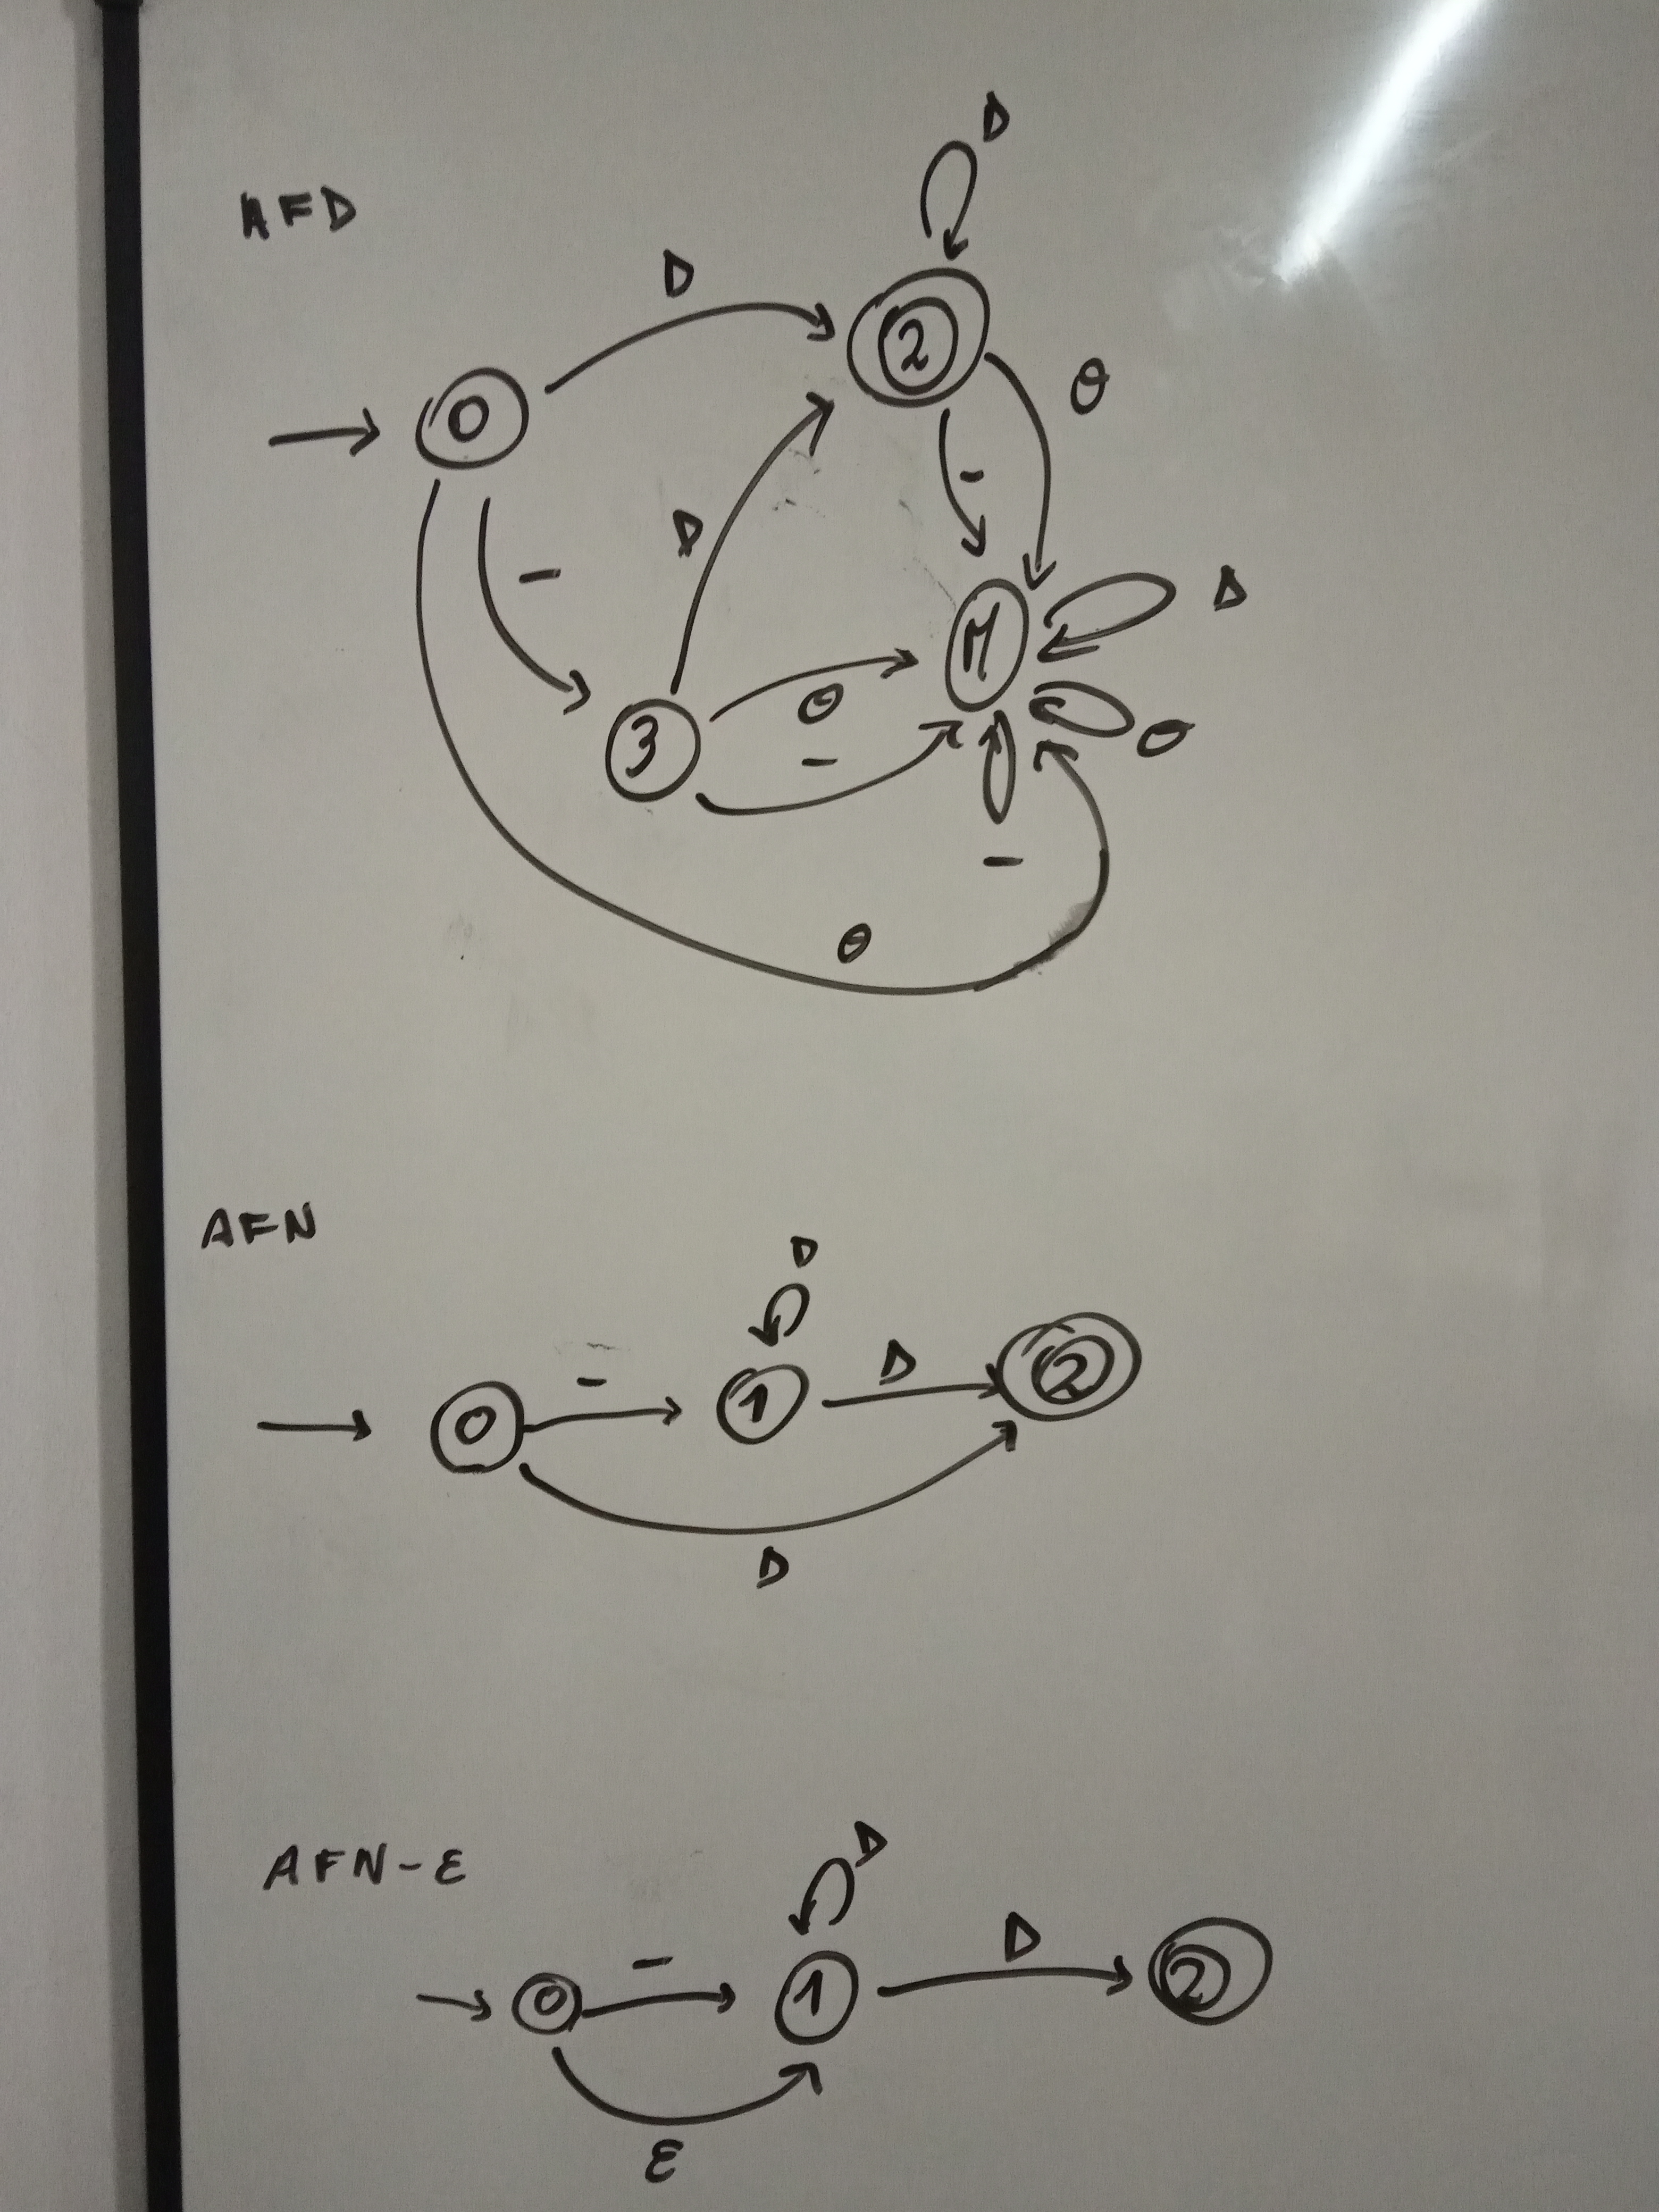 AFD
D
D
0
2
θ
-
D
-
M
D
3
θ
-
θ
-
θ
AFN
D
0
-
1
D
2
D
AFN-ε
D
0
-
1
D
2
ε